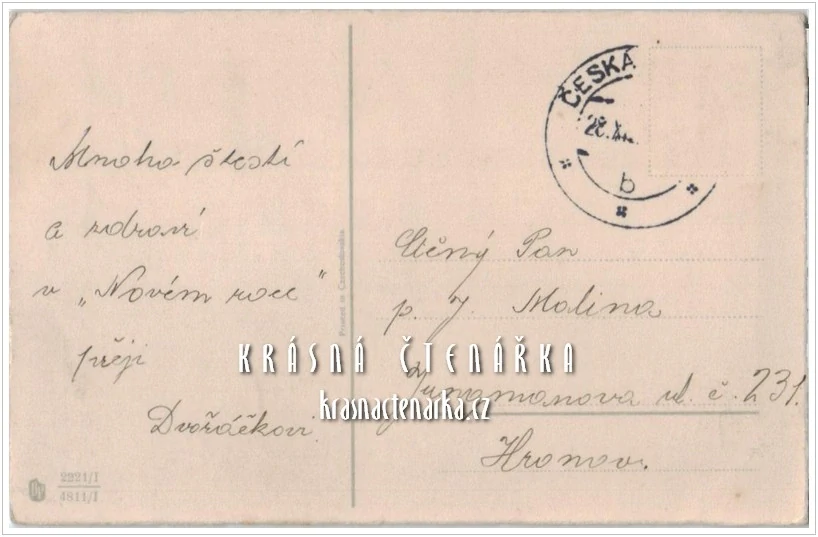 Mnoho štěstí
a zdraví
v „Novém roce"
přejí
Dvořáčkovi.
Printed in Czechoslovakia
2221/I
4811/I
ČESKÁ
b
Ctěný Pan
p. J. Malina
Jungmanova ul. č. 231.
Hronov.
KRÁSNÁ ČTENÁŘKA
krasnactenarka.cz